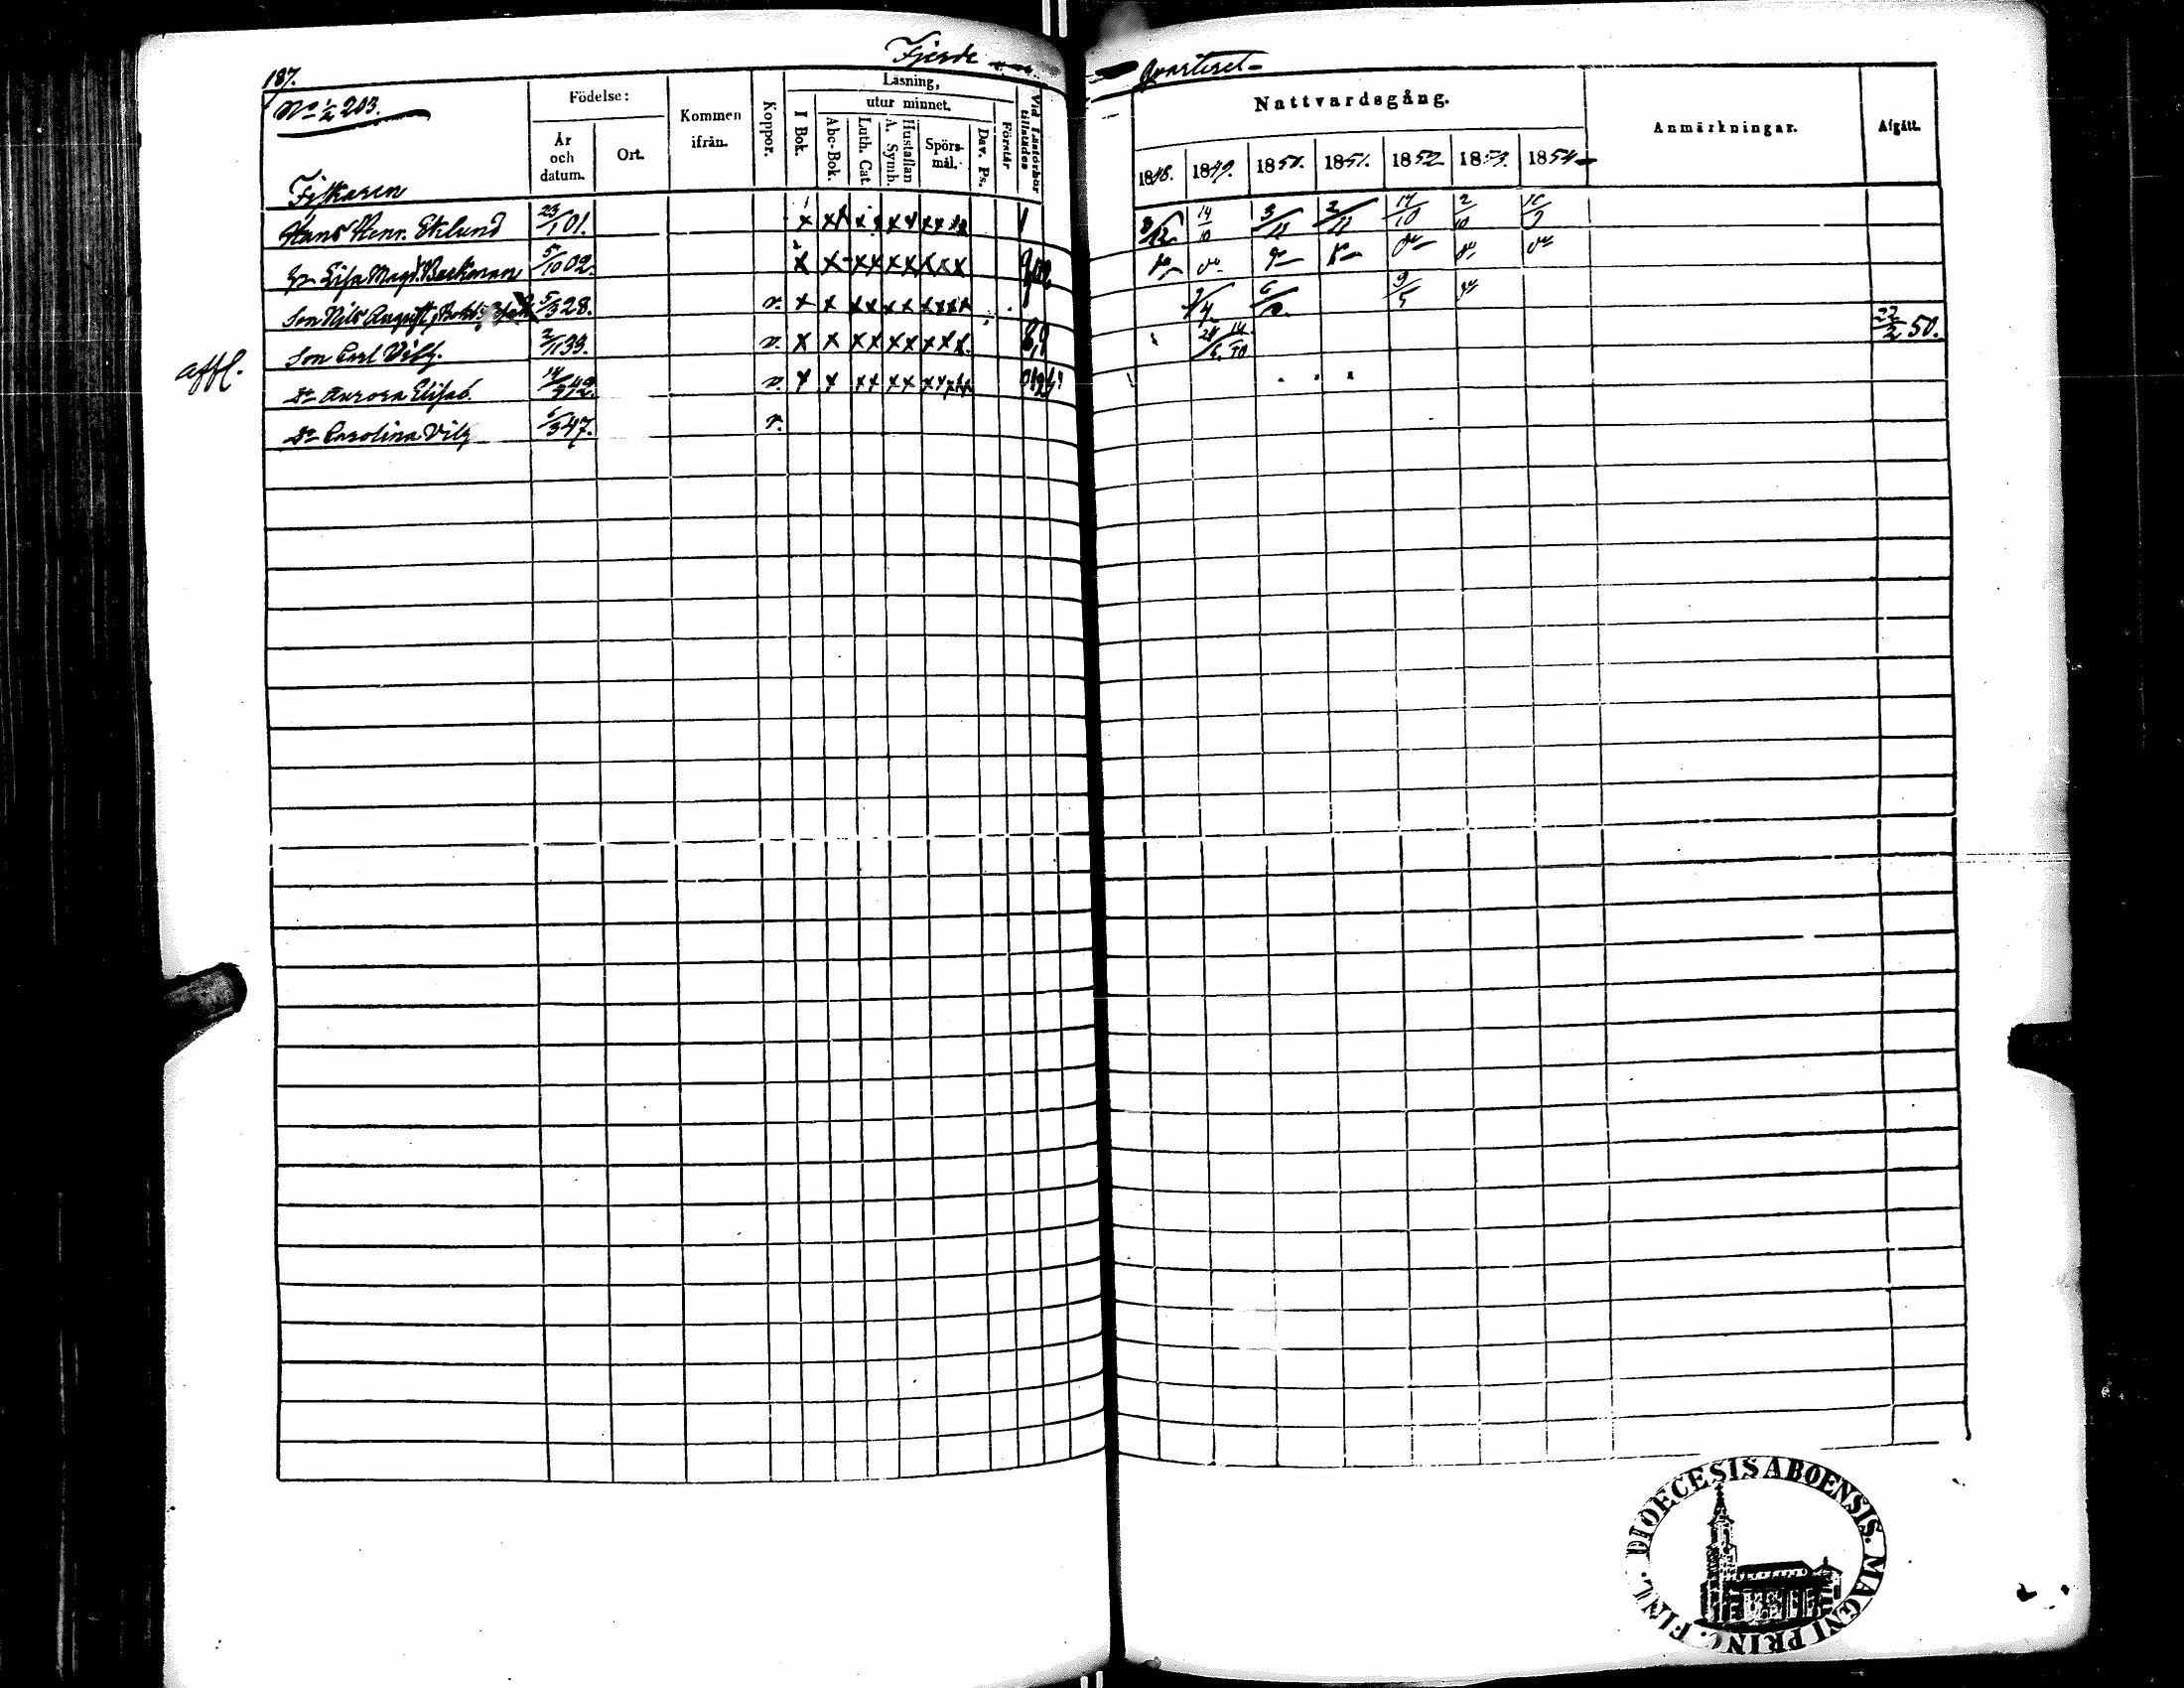 Fjerde
Qvarteret
187.
No ½ 203.
Födelse:
År och datum.
Ort.
Kommen ifrån.
Koppor.
Läsning,
I Bok.
utur minnet.
Abc-Bok.
Luth. Cat.
Hustaflan A. Symb.
Spörsmål.
Dav. Ps.
Förstår
Vid Läsförhör tillstädes
Nattvardsgång.
1848. 1849. 1850. 1851. 1852 1853. 1854
Anmärkningar.
Afgått.
Fiskaren
Hans Henr. Eklund 23/1 01. x x x x x x 14/10 3/11 2/11 17/10 2/10
Lisa Magd. Backman 5/10 02. x x x x x x x x x do do do do do
Son Nils August 5/3 28. v. x x x x x x x x x x 9/5 do
Son Carl Vilh. 2/1 33. v. x x x x x x x x x 14/10 22/2 50.
affl. Dr Aurora Elisab. 14/9 42. v. x x x x x x x x x x
Dr Carolina Vilh 5/3 47. v.
DIOECESIS ABOENSIS. MAGNI PRINC. FINL.